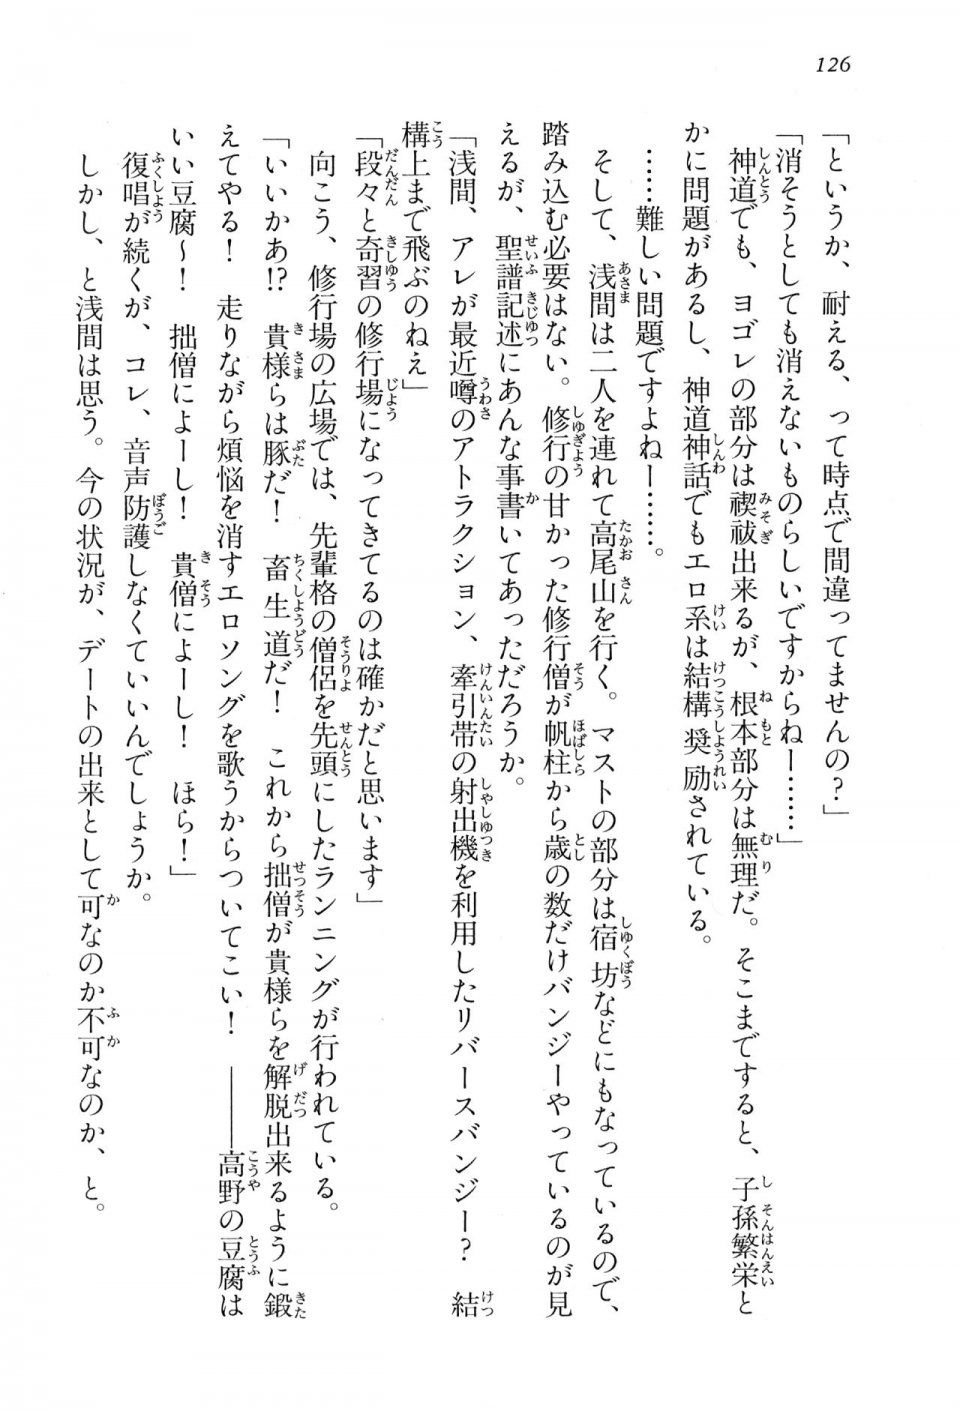 126
「というか、耐える、って時点で間違ってませんの？」
「消そうとしても消えないものらしいですからねー……」
　神道でも、ヨゴレの部分は禊祓出来るが、根本部分は無理だ。そこまですると、子孫繁栄と
かに問題があるし、神道神話でもエロ系は結構奨励されている。
　……難しい問題ですよねー……。
　そして、浅間は二人を連れて高尾山を行く。マストの部分は宿坊などにもなっているので、
踏み込む必要はない。修行の甘かった修行僧が帆柱から歳の数だけバンジーやっているのが見
えるが、聖譜記述にあんな事書いてあっただろうか。
「浅間、アレが最近噂のアトラクション、牽引帯の射出機を利用したリバースバンジー？　結
構上まで飛ぶのねえ」
「段々と奇習の修行場になってきてるのは確かだと思います」
　向こう、修行場の広場では、先輩格の僧侶を先頭にしたランニングが行われている。
「いいかあ!?　貴様らは豚だ！　畜生道だ！　これから拙僧が貴様らを解脱出来るように鍛
えてやる！　走りながら煩悩を消すエロソングを歌うからついてこい！　――高野の豆腐は
いい豆腐～！　拙僧によーし！　貴僧によーし！　ほら！」
　復唱が続くが、コレ、音声防護しなくていいんでしょうか。
　しかし、と浅間は思う。今の状況が、デートの出来として可なのか不可なのか、と。